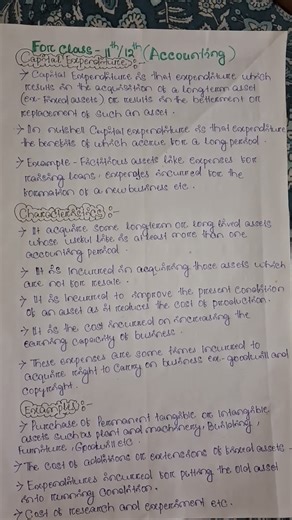 For Class - 11th/12th (Accounting)
Capital Expenditure :-
→ Capital Expenditure is that expenditure which
results in the acquisition of a longterm asset
(ex- fixed assets) or results in the betterment or
replacement of such an asset.
→ In nutshel Capital expenditure is that expenditure
the benefits of which accrue for a long period.
→ Example - Fictitious assets like expenses for
raising loans. expenses incurred for the
formation of a new business etc.
Characteristics :-
→ It acquire some longterm or long lived assets
whose useful life is atleast more than one
accounting period.
→ It is Incurred in acquiring those assets which
are not for resale.
→ It is Incurred to improve the present condition
of an asset as it reduces the cost of production.
→ It is the cost incurred on increasing the
earning capacity of business.
→ These expenses are some times incurred to
acquire right to carry on business ex- goodwill and
copyright.
Examples :-
→ Purchase of Permanent tangible or Intangible
assets such as plant and machinery, Building,
Furniture, Goodwill etc.
→ The cost of additions or extensions of fixed assets.
→ Expenditures incurred for putting the old asset
into running condition.
→ Cost of research and experiment etc.